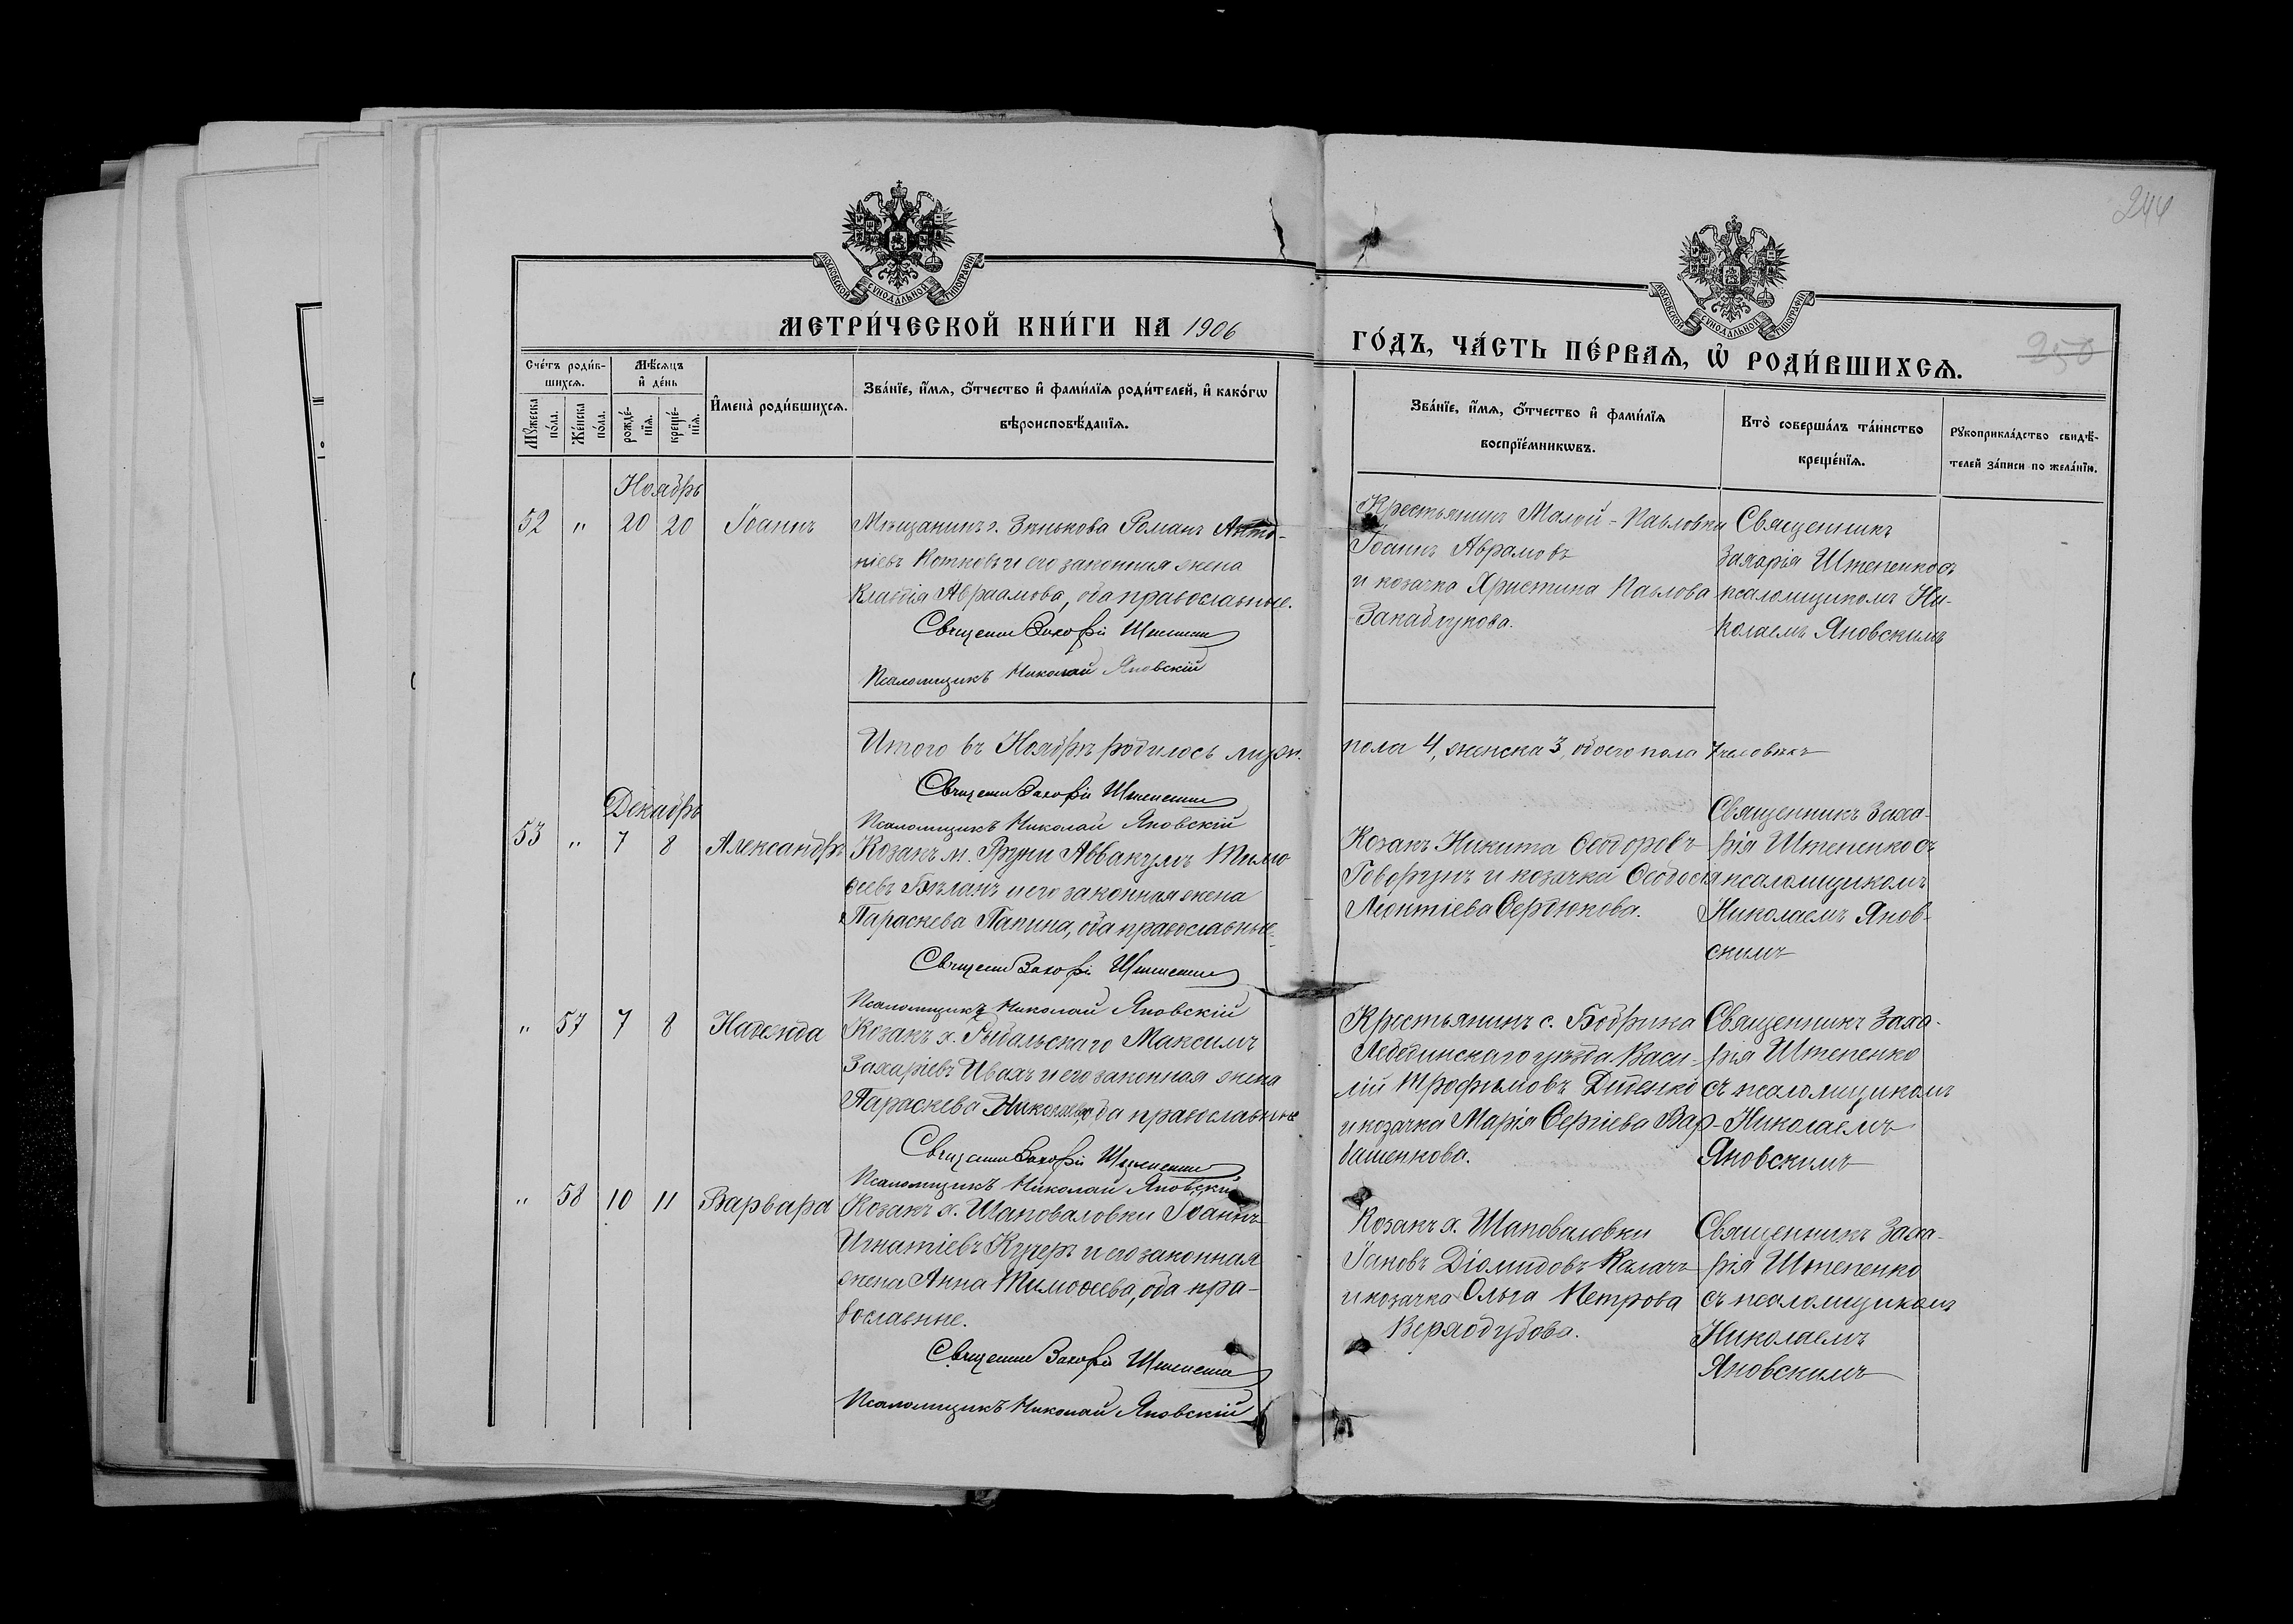 244
МОСКОВСКОЙ СѴНОДАЛЬНОЙ ТИПОГРАФІИ
МОСКОВСКОЙ СѴНОДАЛЬНОЙ ТИПОГРАФІИ
МЕТРИ́ЧЕСКОЙ КНИ́ГИ НА 1906
ГО́ДЪ, ЧА́СТЬ ПЕ́РВАѦ, Ѽ РОДИ́ВШИХСѦ.
250
Сче́тъ роди́в-
шихсѧ.
Мꙋжеска
по́ла.
Же́нска
по́ла.
Мѣ́сѧцъ
и҆ де́нь
рожде́-
нїѧ.
креще́-
нїѧ.
И҆мена̀ роди́вшихсѧ.
Зва́нїе, и҆́мѧ, ѻ҆́тчество и҆ фами́лїѧ роди́телей, и҆ како́гѡ
вѣроисповѣ́данїѧ.
Зва́нїе, и҆́мѧ, ѻ҆́тчество и҆ фами́лїѧ
воспрїе́мникѡвъ.
Кто̀ соверша́лъ та́инство
креще́нїѧ.
Рꙋкоприкла́дство свидѣ́-
телей за́писи по жела́нїю.
Ноябрь
52 " 20 20 Іоаннъ
Мѣщанинъ г. Зѣнькова Романъ Анто-
ніевъ Котковъ и его законная жена
Клавдія Авраамова, оба православные.
Священн Захарій Штепенко
Псаломщикъ Николай Яновскій
Крестьянинъ Малой-Павловки
Іоаннъ Аврамовъ
и козачка Христина Павлова
Закаблукова.
Священникъ
Захарія Штепенко съ
псаломщикомъ Ни-
колаемъ Яновскимъ
Итого въ Ноябрѣ родилось муж. пола 4, женска 3, обоего пола 7 человѣкъ
Священн Захарій Штепенко
Псаломщикъ Николай Яновскій
Декабрь
53 " 7 8 Александръ
Козакъ м. Груни Аввакумъ Тимо
ѳеевъ Бѣланъ и его законная жена
Параскева Папина, оба православные.
Священн Захарій Штепенко
Псаломщикъ Николай Яновскій
Козакъ Никита Ѳеодоровъ
Говорунъ и козачка Ѳеодосія
Леонтіева Сердюкова.
Священникъ Заха-
рія Штепенко съ
псаломщикомъ
Николаемъ Янов-
скимъ
" 57 7 8 Надежда
Козакъ х. Рыбальскаго Максимъ
Захаріевъ Ивахъ и его законная жена
Параскева Николаева, оба православные
Священн Захарій Штепенко
Псаломщикъ Николай Яновскій
Крестьянинъ с. Бобрика
Лебединскаго уѣзда Васи-
лій Трофимовъ Діденко
и козачка Марія Сергіева Вар-
вашенкова.
Священникъ Заха-
рія Штепенко
съ псаломщикомъ
Николаемъ
Яновскимъ
" 58 10 11 Варвара
Козакъ х. Шаповаловки Іоаннъ
Игнатіевъ Кучеръ и его законная
жена Анна Тимоѳеева, оба пра-
вославные.
Священн Захарій Штепенко
Псаломщикъ Николай Яновскій
Козакъ х. Шаповаловки
Іаковъ Діомидовъ Калачъ
и козачка Ольга Петрова
Верходубова.
Священникъ Заха-
рія Штепенко
съ псаломщикомъ
Николаемъ
Яновскимъ